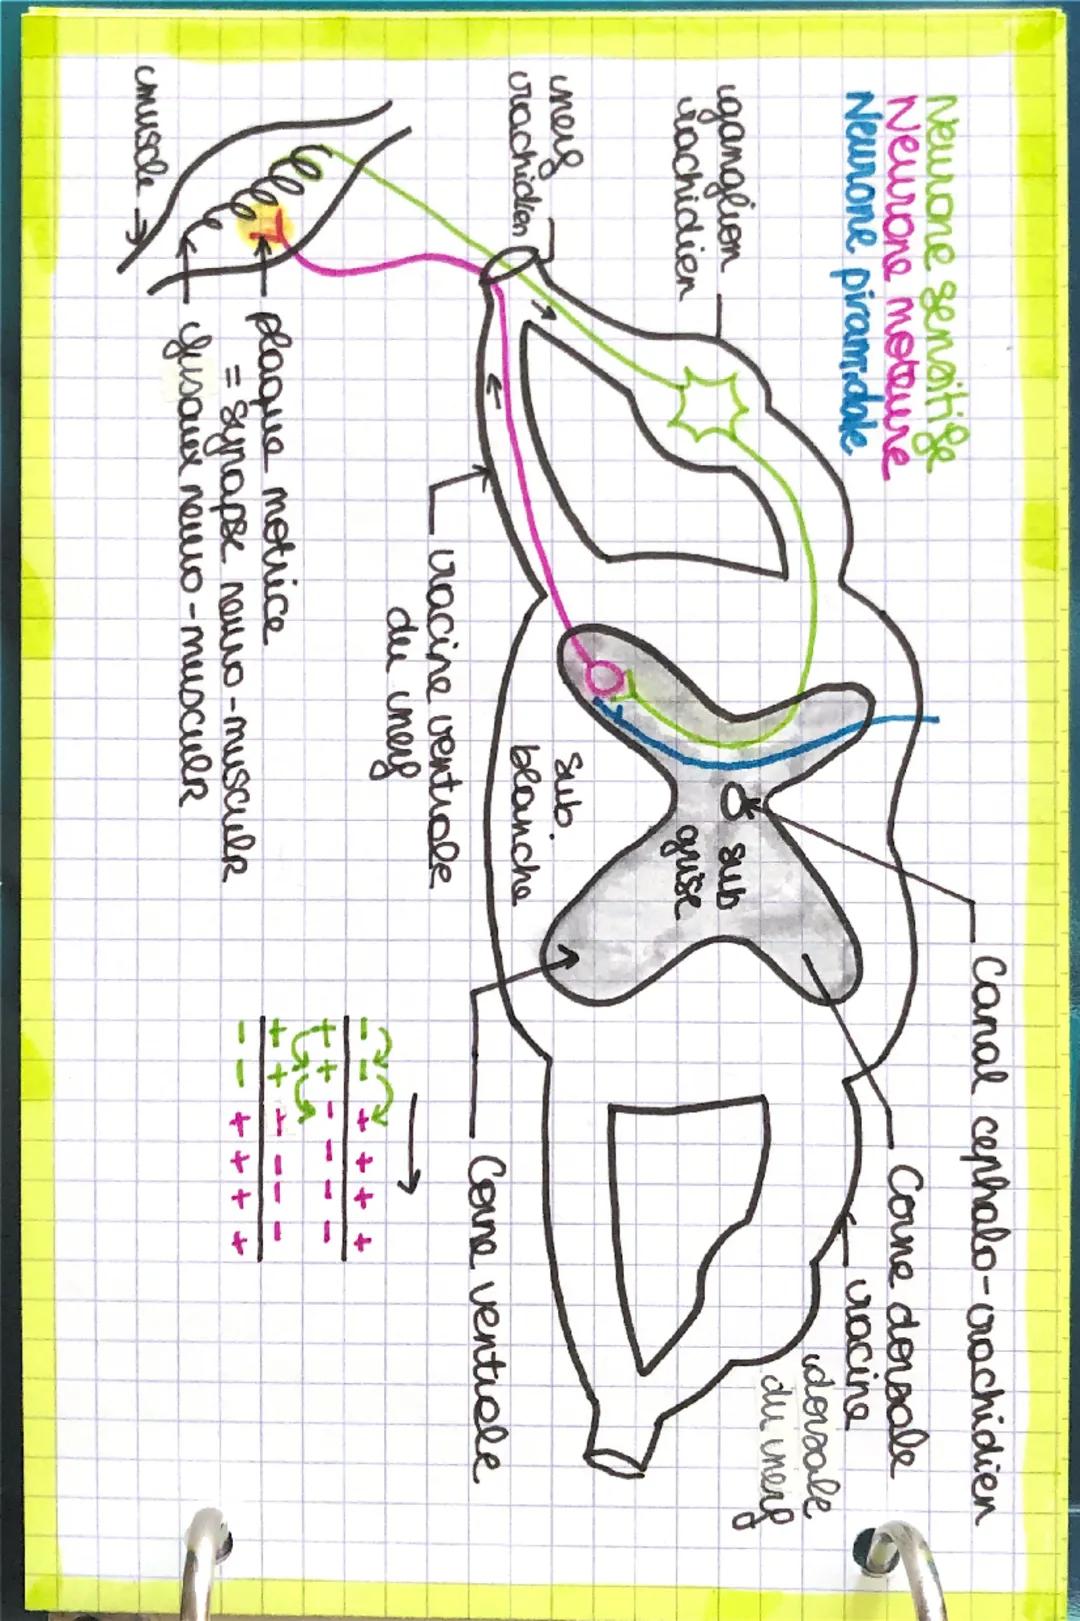 Neurone sensitife
Neurone moteure
Neurone piramidale
Canal cephalo-rachidien
Corne dorsale
racine
dorsale
du nerf
ganglion
rachidien
nerf
rachidien
sub
grise
sub.
blanche
Corne ventrale
racine ventrale
du nerf
plaque motrice
= synapse neuro-musculR
fusaux neuro-musculR
muscle
- - + + + +
+ + - - - -
+ + - - - -
- - + + + +